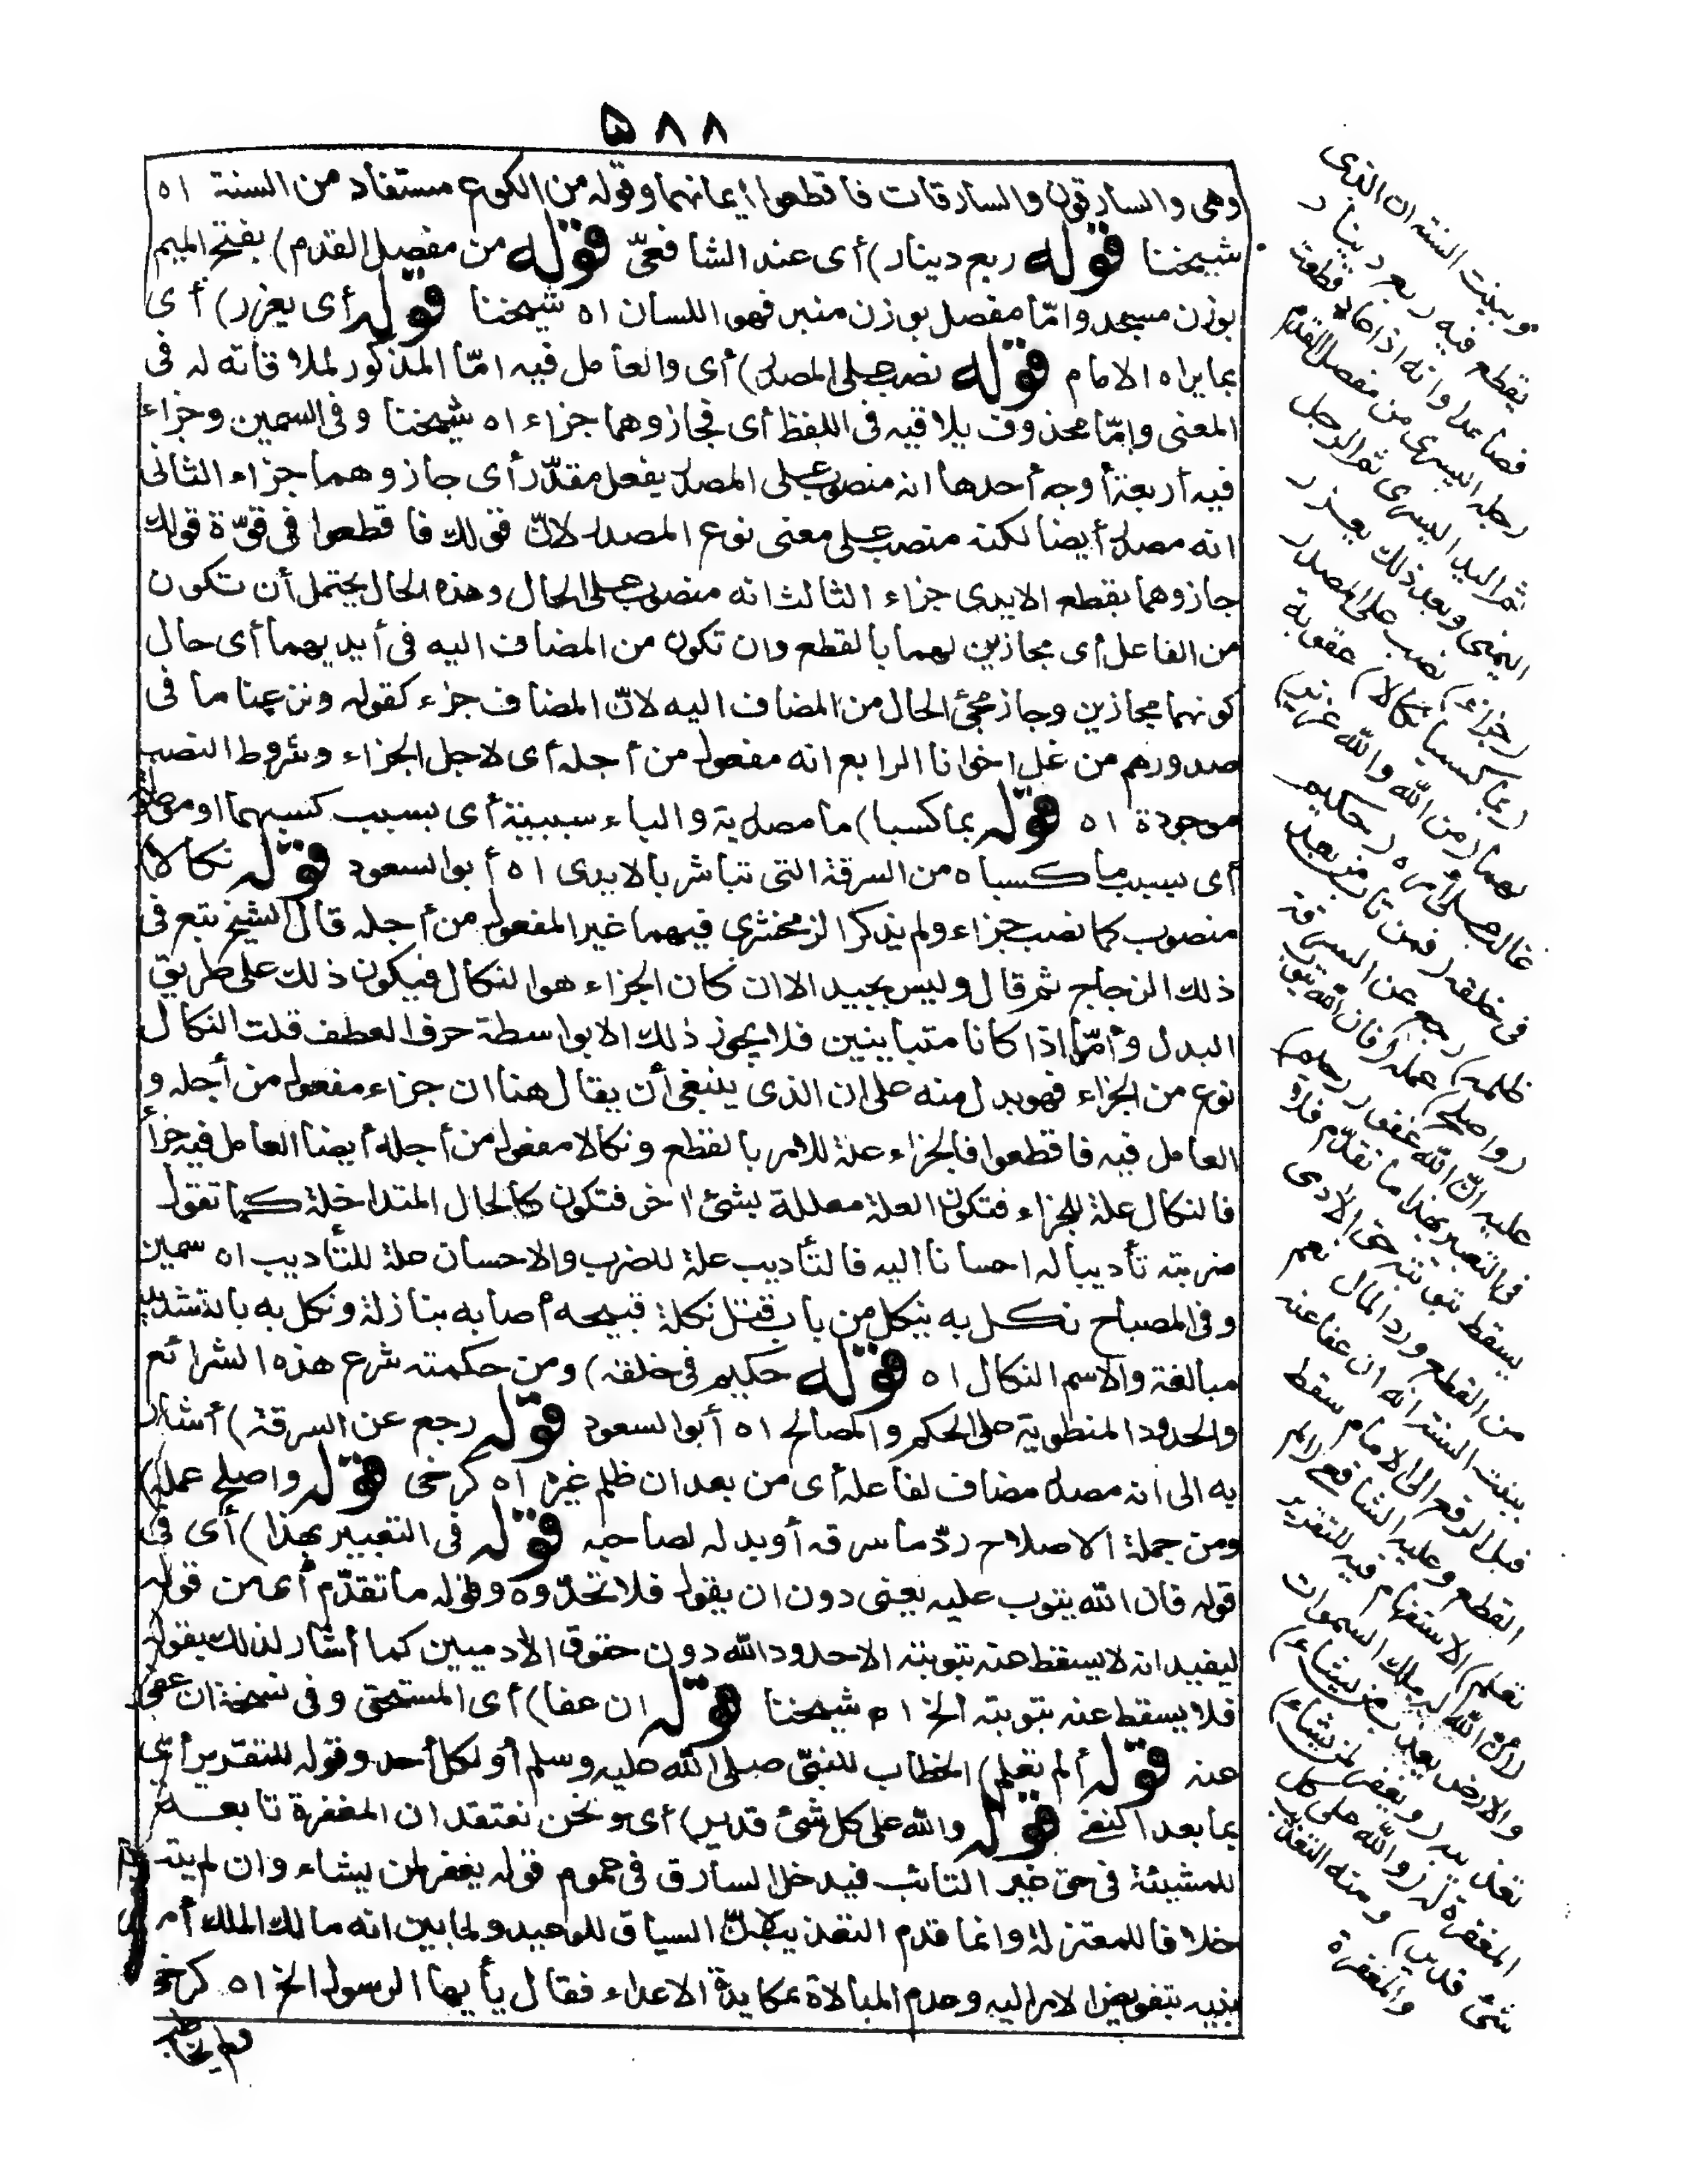 ٥٨٨
وهى والسارقون والسارقات فاقطعوا أيمانهما وقوله من الكوع مستفاد من السنة اه
شيخنا قوله ربع دينار) أى عند الشافعىّ قوله من مفصل القدم) بفتح الميم
بوزن مسجد وامّا مفصل بوزن منبر فهو اللسان اه شيخنا قوله أى يعزر) أى
بما يراه الامام قوله نصب على المصدر) أى والعامل فيه امّا المذكور لملاقاته له فى
المعنى وامّا محذوف يلاقيه فى اللفظ أى فجازوهما جزاء اه شيخنا وفى السمين وجزاء
فيه أربعة أوجه أحدها انه منصوب على المصدر بفعل مقدّر أى جازوهما جزاء الثانى
انه مصدر أيضا لكنه منصب على معنى نوع المصدر لانّ قولك فاقطعوا فى قوّة قولك
جازوهما بقطع الايدى جزاء الثالث انه منصوب على الحال وهذه الحال يحتمل أن تكون
من الفاعل أى مجازين لهما بالقطع وان تكون من المضاف اليه فى أيديهما أى حال
كونهما مجازين وجاز مجئ الحال من المضاف اليه لانّ المضاف جزء كقوله ونزعنا ما فى
صدورهم من غل اخوانا الرابع انه مفعول من أجله أى لاجل الجزاء وشروط النصب
موجودة اه قوله بما كسبا) ما مصدرية والباء سببية أى بسبب كسبهما او موصولة
أى بسبب ما كسباه من السرقة التى تباشر بالايدى اه أبو السعود قوله نكالا)
منصوب كما نصب جزاء ولم يذكر الزمخشرى فيهما غير المفعول من أجله قال الشيخ تبع فى
ذلك الزجاج ثم قال وليس بجيد الا ان كان الجزاء هو النكال فيكون ذلك على طريق
البدل وأمّا اذا كانا متباينين فلا يجوز ذلك الا بواسطة حرف العطف قلت النكال
نوع من الجزاء فهو بدل منه على ان الذى ينبغى أن يقال هنا ان جزاء مفعول من أجله و
العامل فيه فاقطعوا فالجزاء علة للامر بالقطع ونكالا مفعول من أجله أيضا العامل فيه جزاء
فالنكال علة للجزاء فتكون العلة معللة بشئ اخر فتكون كالحال المتداخلة كما تقول
ضربته تأديبا له احسانا اليه فالتأديب علة للضرب والاحسان علة للتأديب اه سمين
وفى المصباح نكل به ينكل من باب قتل نكلة قبيحه أصابه بنازلة ونكل به بالتشديد
مبالغة والاسم النكال اه قوله حكيم فى خلقه) ومن حكمته شرع هذه الشرائع
والحدود المنطوية على الحكم والمصالح اه أبو السعود قوله رجع عن السرقة) أشار
به الى انه مصدر مضاف لفاعله أى من بعد ان ظلم غيره اه كرخى قوله واصلح عمله)
ومن جملة الاصلاح ردّ ما سرقه أو بدله لصاحبه قوله فى التعبير بهذا) أى فى
قوله فان الله يتوب عليه يعنى دون ان يقول فلا تحدّوه وقوله ما تقدّم أى من قوله
ليفيد انه لا يسقط عنه بتوبته الا حدود الله دون حقوق الادميين كما أشار لذلك بقوله
فلا يسقط عنه بتوبته الخ اه شيخنا قوله ان عفا) أى المستحق وفى نسخة ان عفى
عنه قوله ألم تعلم) الخطاب للنبىّ صلى الله عليه وسلم أو لكل أحد وقوله للتقرير أى
بما بعد النفى قوله والله على كل شئ قدير) أى ونحن نعتقد ان المغفرة تابعة
للمشيئة فى حق غير التائب فيدخل السارق فى عموم قوله يغفر لمن يشاء وان لم يتب
خلافا للمعتزلة وانما قدم التعذيب لانّ السياق للوعيد ولما بين انه مالك الملك أمر
نبيه بتفويض الامر اليه وعدم المبالاة بمكايدة الاعداء فقال يأيها الرسول الخ اه كرخى
وبينت السنة ان الذى
يقطع فيه ربع دينار
فصاعدا وانه اذا عاد قطعت
رجله اليسرى من مفصل القدم
ثم اليد اليسرى ثم الرجل
اليمنى وبعد ذلك يعزر
(جزاء) نصب على المصدر
(بما كسبا نكالا) عقوبة
لهما (من الله والله عزيز)
غالب على أمره (حكيم)
فى خلقه (فمن تاب من بعد
ظلمه) رجع عن السرقة
(واصلح) عمله (فان الله يتوب
عليه انّ الله غفور رحيم)
فى التعبير بهذا ما تقدّم فلا
يسقط بتوبته حق الادمى
من القطع ورد المال نعم
بينت السنة انه ان عفا عنه
قبل الرفع الى الامام سقط
القطع وعليه الشافعى (ألم
تعلم) الاستفهام فيه للتقرير
(انّ الله له ملك السموات
والارض يعذب من يشاء)
تعذيبه (ويغفر لمن يشاء)
المغفرة له (والله على كل
شئ قدير) ومنه التعذيب
والمغفرة